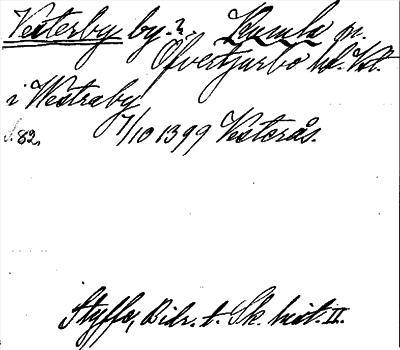 Vesterby by?. Kumla sn.
Öfvertjurbo hd. Vstl.
i Westraby
s. 82. 7/10 1399 Vesterås.
Styffe, Bidr. t. Sk. hist. II.